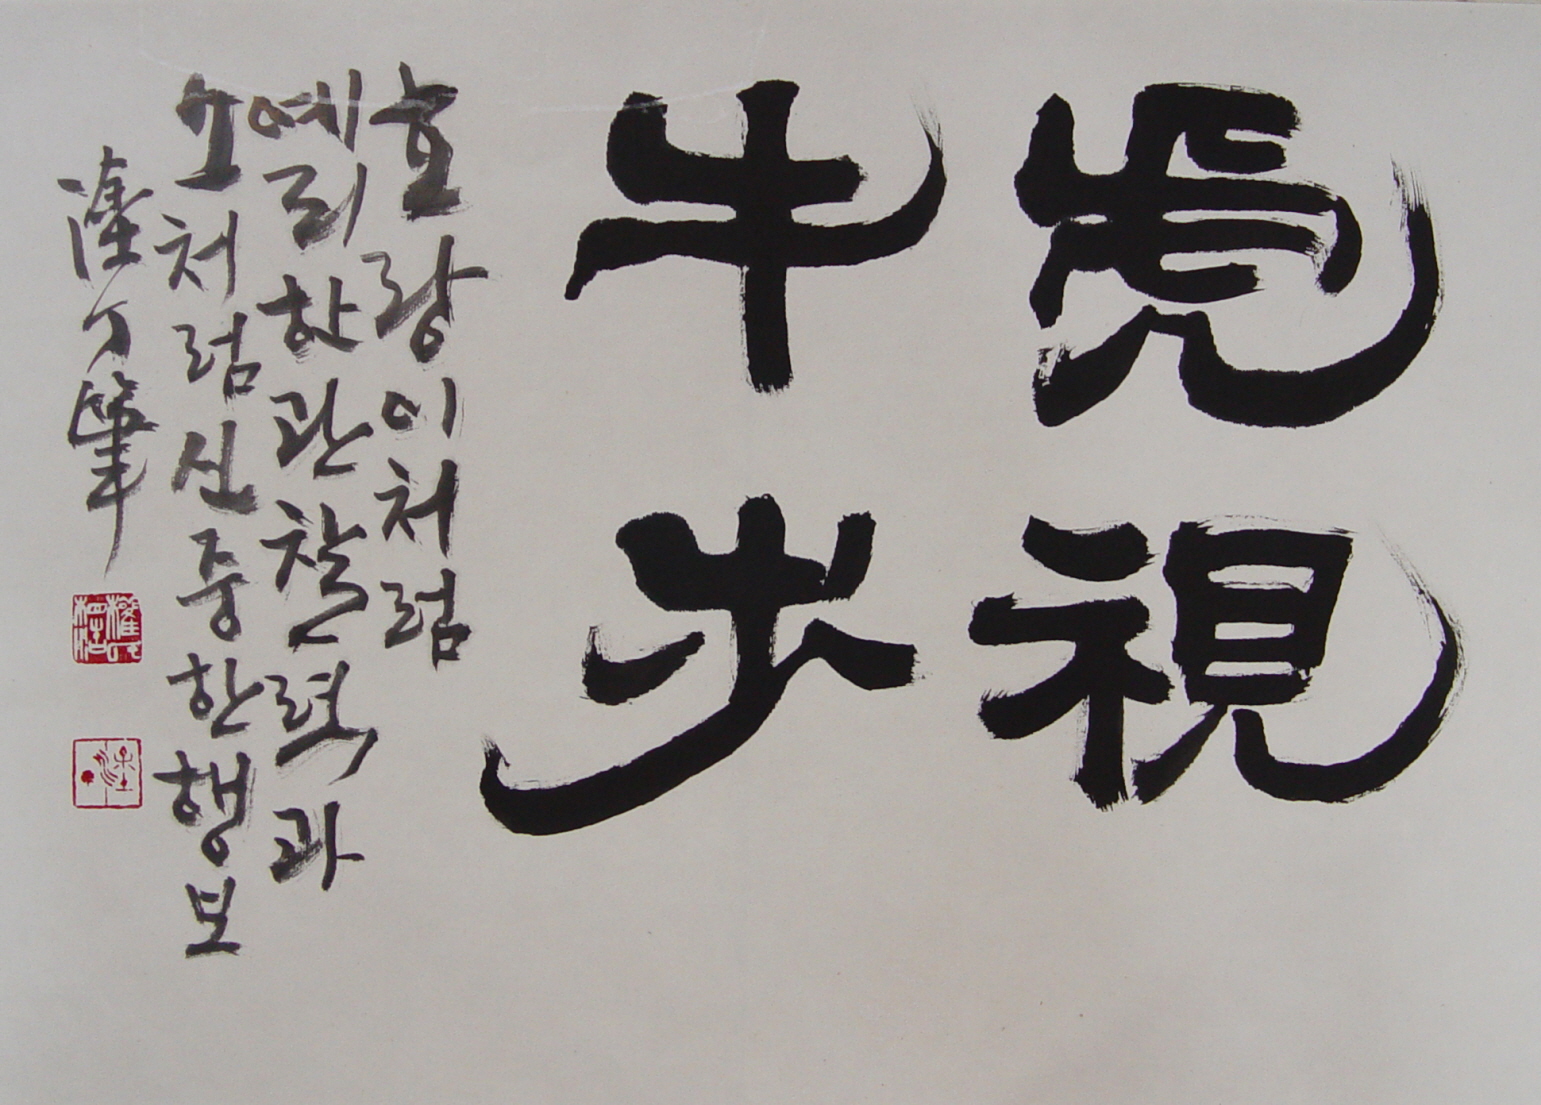 虎視
牛步
호랑이처럼
예리한 관찰력과
소처럼 신중한 행보
丁筆